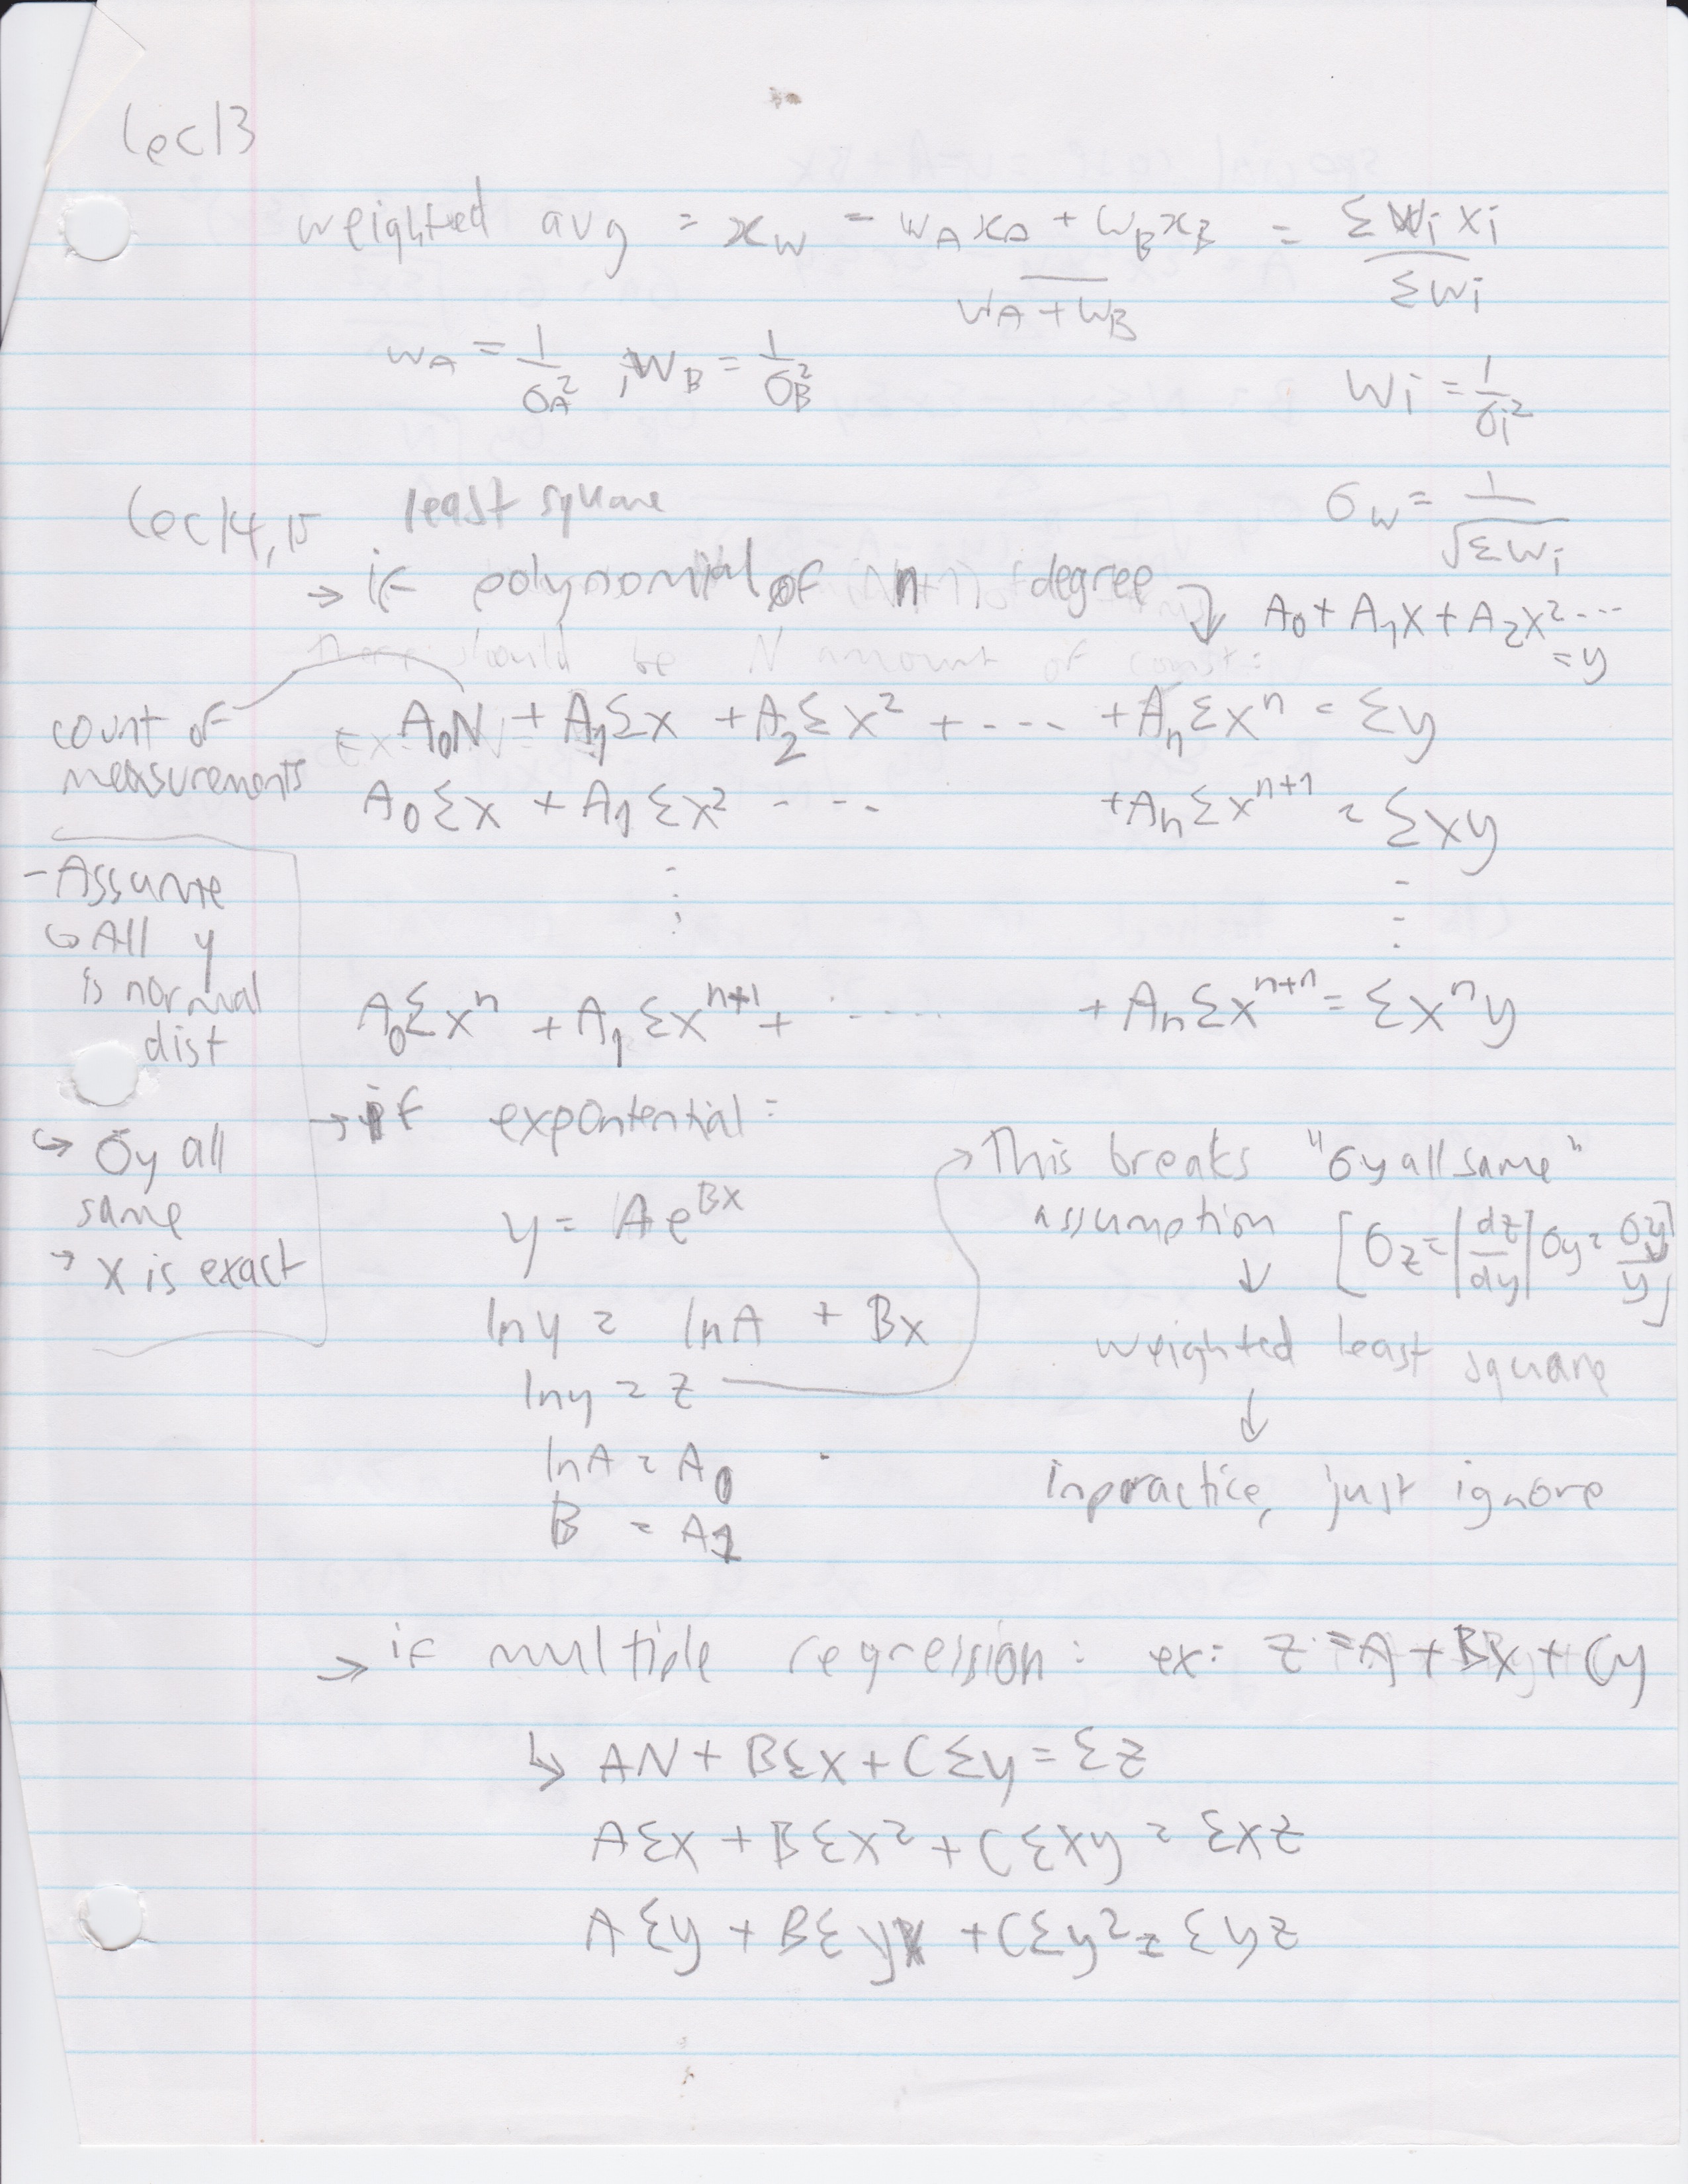 lec13
weighted avg = x_w = (w_A x_A + w_B x_B) / (w_A + w_B) = Σ w_i x_i / Σ w_i
w_A = 1/σ_A², w_B = 1/σ_B²
w_i = 1/σ_i²
σ_w = 1/√(Σ w_i)
lec14, 15 least square
→ if polynomial of n degree ↴ A₀ + A₁x + A₂x² ...
= y
count of
measurements
A₀N + A₁Σx + A₂Σx² + .... + AₙΣxⁿ = Σy
A₀Σx + A₁Σx² .... + AₙΣxⁿ⁺¹ = Σxy
⋮ ⋮
A₀Σxⁿ + A₁Σxⁿ⁺¹ + ..... + AₙΣxⁿ⁺ⁿ = Σxⁿy
- Assume
↪ All y
is normal
dist
↪ σy all
same
→ x is exact
→ if expontential:
y = Ae^(Bx)
ln y = ln A + Bx
ln y = z
ln A = A₀
B = A₁
→ This breaks "σy all same"
assumption [σ_z = |dz/dy| σy = σy/y]
↓
weighted least square
↓
In practice, just ignore
→ if multiple regression: ex: z = A + Bx + Cy
↳ AN + BΣx + CΣy = Σz
AΣx + BΣx² + CΣxy = Σxz
AΣy + BΣyx + CΣy² = Σyz